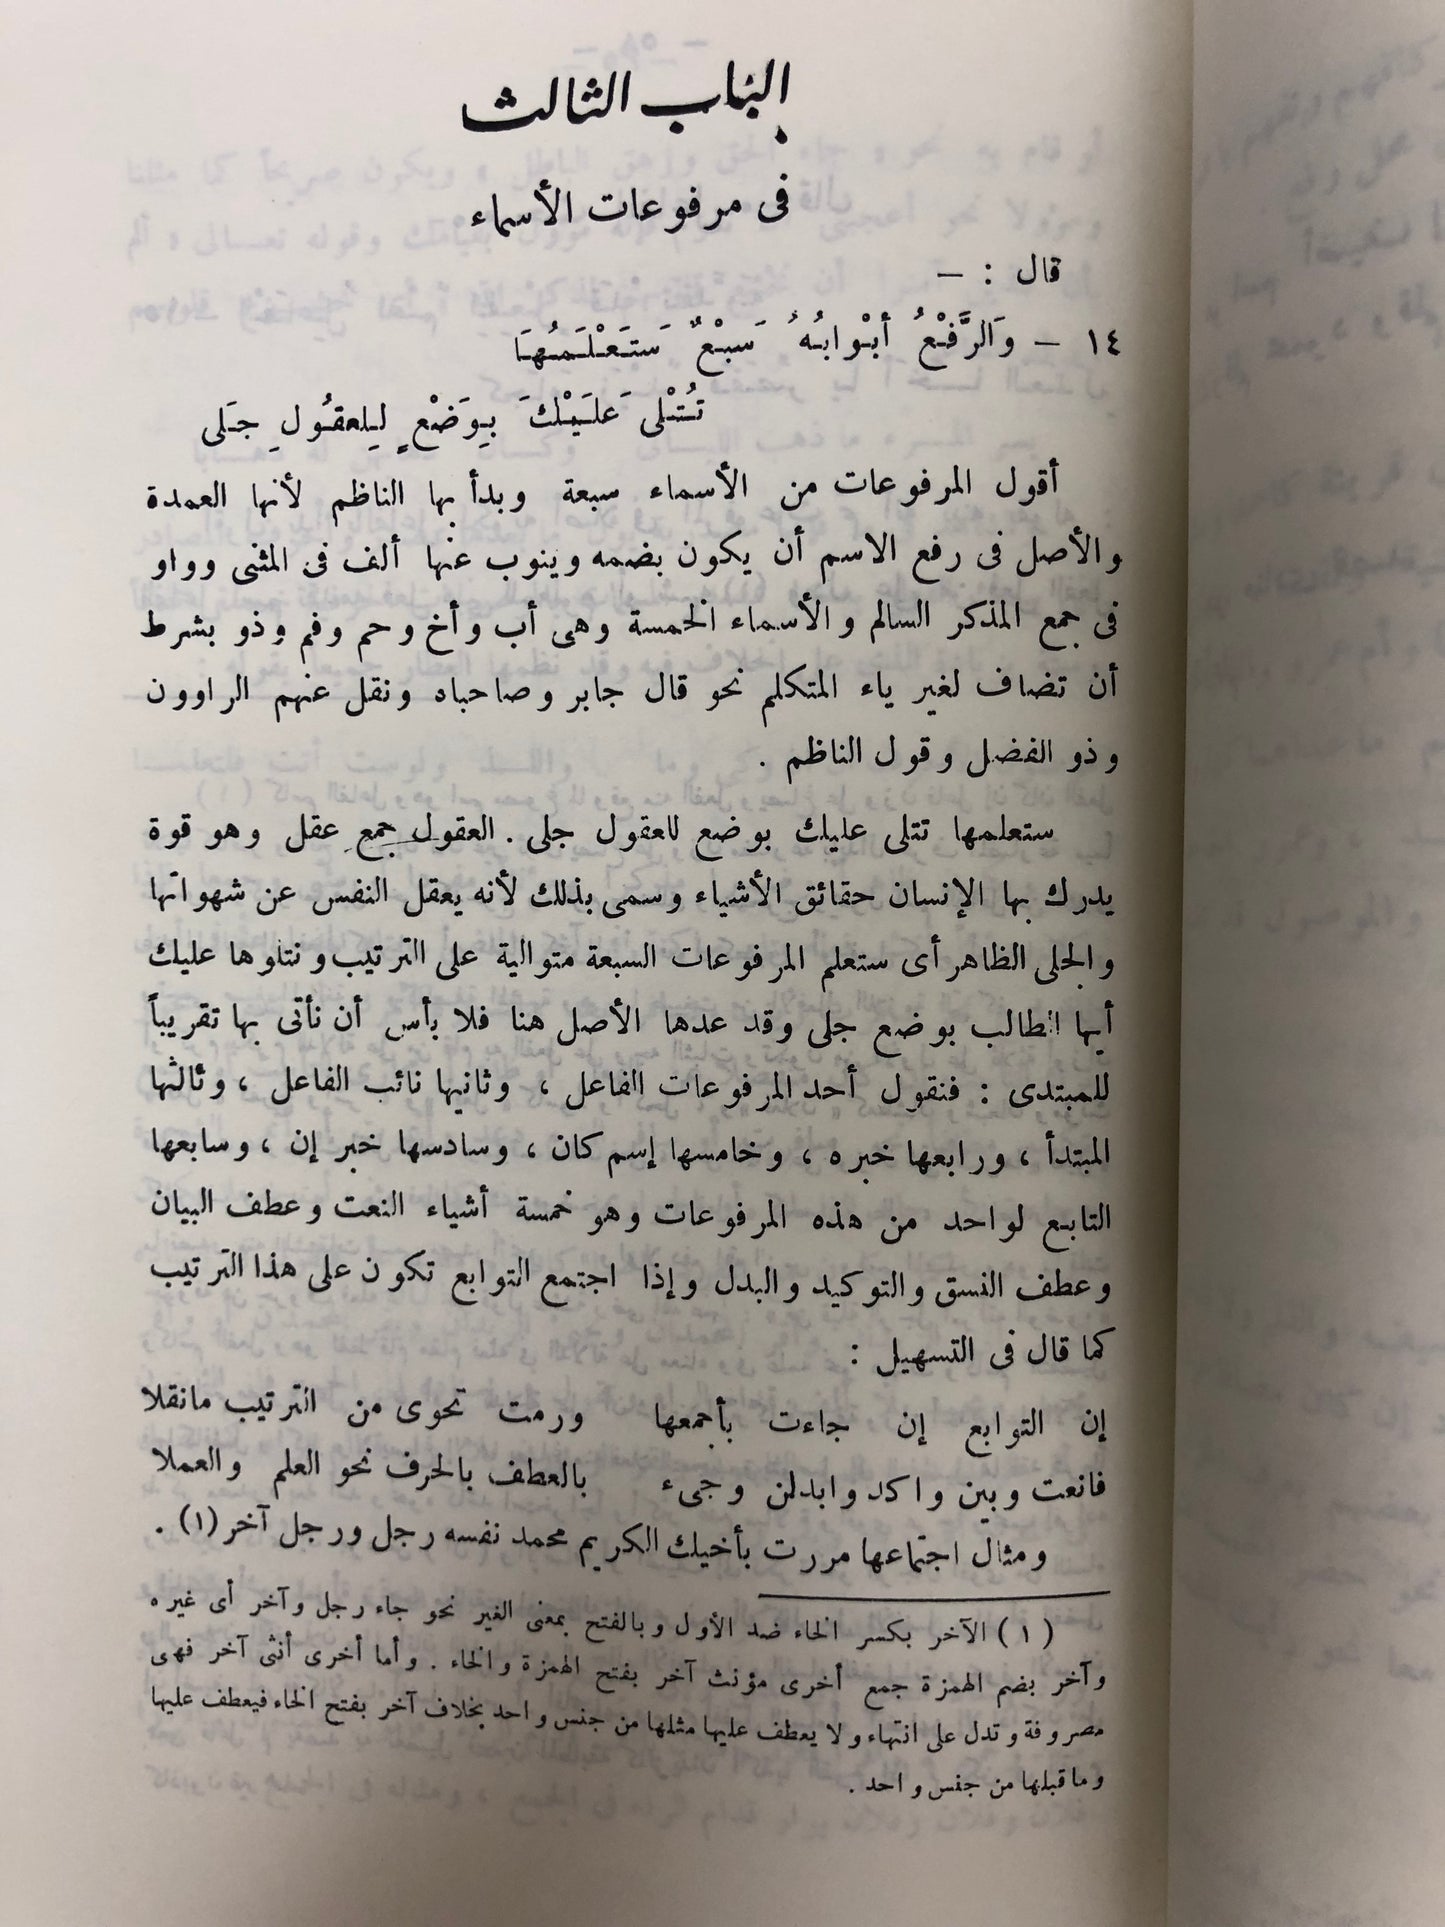 الباب الثالث
فى مرفوعات الأسماء
قال : —
١٤ — وَالرَّفْعُ أبْوابُهُ سَبْعٌ سَتَعْلَمُهَا
تُتْلى عَلَيْكَ بِوَضْعٍ لِلعقُولِ جَلى
أقول المرفوعات من الأسماء سبعة وبدأ بها الناظم لأنها العمدة
والأصل فى رفع الاسم أن يكون بضمه وينوب عنها ألف فى المثنى وواو
فى جمع المذكر السالم والأسماء الخمسة وهى أب وأخ وحم وفم وذو بشرط
أن تضاف لغير ياء المتكلم نحو قال جابر وصاحباه ونقل عنهم الراوون
وذو الفضل وقول الناظم .
ستعلمها تتلى عليك بوضع للعقول جلى . العقول جمع عقل وهو قوة
يدرك بها الإنسان حقائق الأشياء وسمى بذلك لأنه يعقل النفس عن شهواتها
والجلى الظاهر أى ستعلم المرفوعات السبعة متوالية على الترتيب ونتلوها عليك
أيها الطالب بوضع جلى وقد عدها الأصل هنا فلا بأس أن نأتى بها تقريباً
للمبتدى : فنقول أحد المرفوعات الفاعل ، وثانيها نائب الفاعل ، وثالثها
المبتدأ ، ورابعها خبره ، وخامسها إسم كان ، وسادسها خبر إن ، وسابعها
التابع لواحد من هذه المرفوعات وهو خمسة أشياء النعت وعطف البيان
وعطف النسق والتوكيد والبدل وإذا اجتمع التوابع تكون على هذا الترتيب
كما قال فى التسهيل :
إن التوابع إن جاءت بأجمعها ورمت تحوى من الترتيب مانقلا
فانعت وبين واكد وابدلن وجىء بالعطف بالحرف نحو العلم والعملا
ومثال اجتماعها مررت بأخيك الكريم محمد نفسه رجل ورجل آخر (١) .
(١) الآخر بكسر الخاء ضد الأول وبالفتح بمعنى الغير نحو جاء رجل وآخر أى غيره
وآخر بضم الهمزة جمع أخرى مؤنث آخر بفتح الهمزة والخاء . وأما أخرى أنثى آخر فهى
مصروفة وتدل على انتهاء ولا يعطف عليها مثلها من جنس واحد بخلاف آخر بفتح الخاء فيعطف عليها
وما قبلها من جنس واحد .